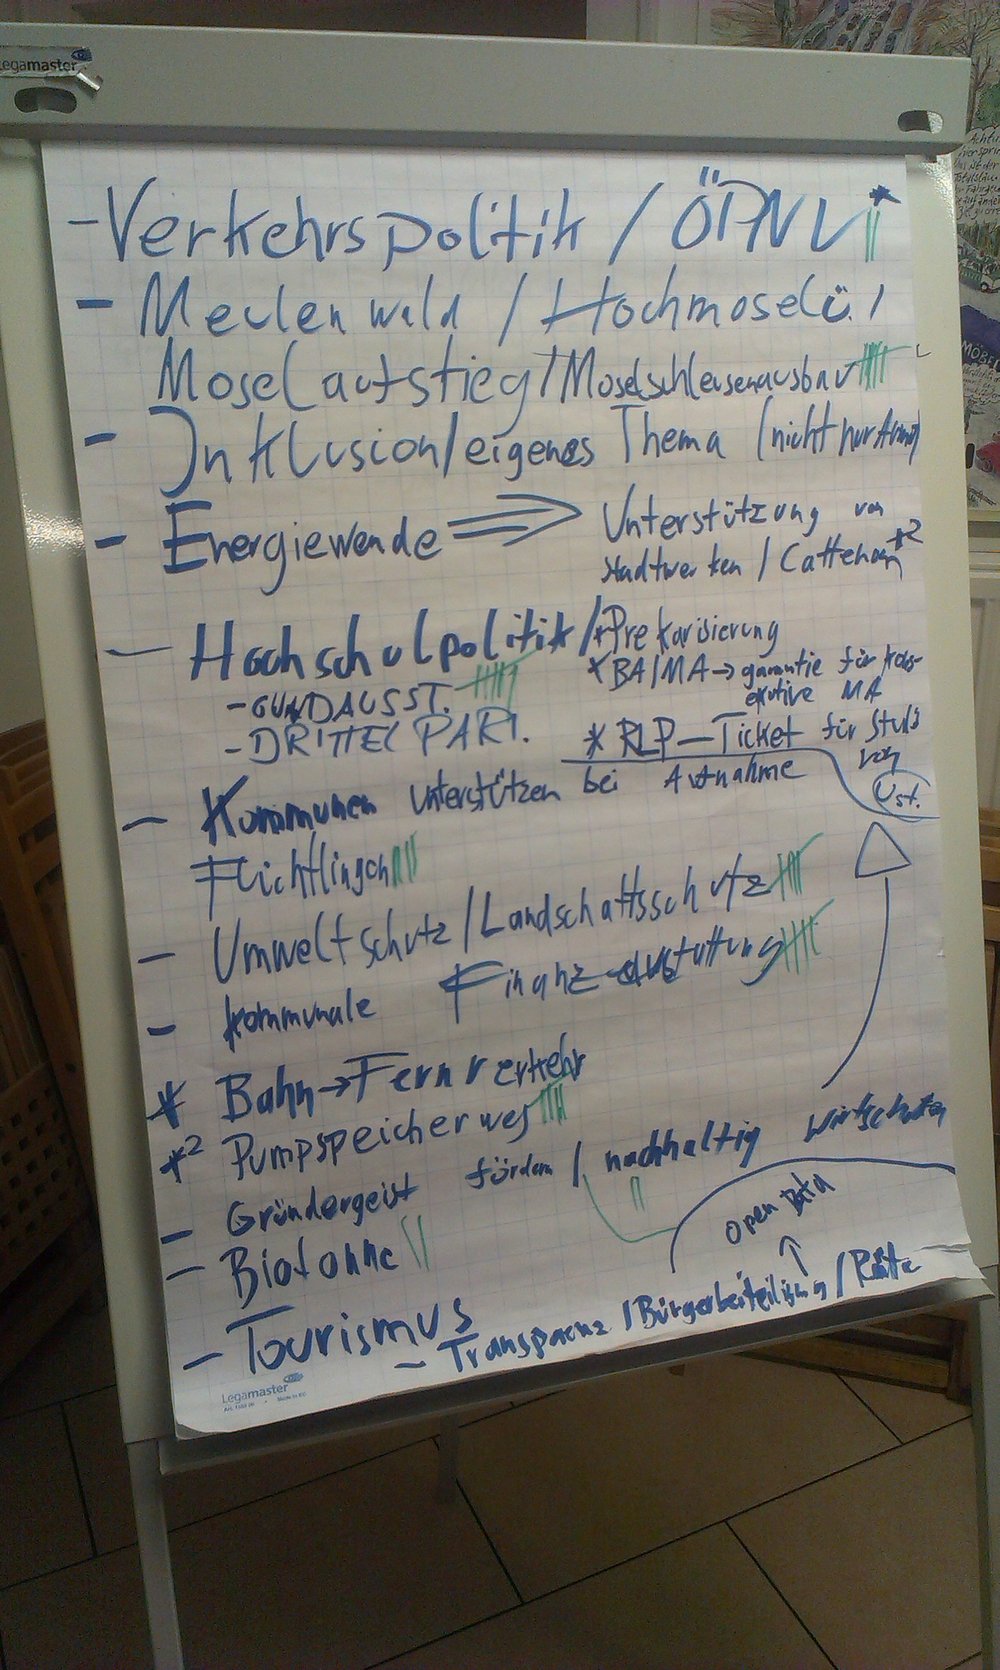 Legamaster
- Verkehrspolitik / ÖPNV *
- Meulenwald / Hochmoselü. /
Moselaufstieg / Moselschleusenausbau
- Inklusion / eigenes Thema (nicht nur Armut)
- Energiewende ⇒ Unterstützung von
Stadtwerken / Cattenom *2
- Hochschulpolitik / * Prekarisierung
* BA/MA → garantie für kons-
ekutive MA
- GUNDAUSST.
- DRITTELPARI.
* RLP-Ticket für Studis
von
Ust.
- Kommunen unterstützen bei Aufnahme
Flüchtlingen
- Umweltschutz / Landschaftsschutz
- kommunale Finanzausstattung
* Bahn → Fernverkehr
*2 Pumpspeicherwerk
- Gründergeist fördern / nachhaltig wirtschaften
- Biotonne
Open Data
- Tourismus
- Transparenz / Bürgerbeteiligung / Räte
Legamaster